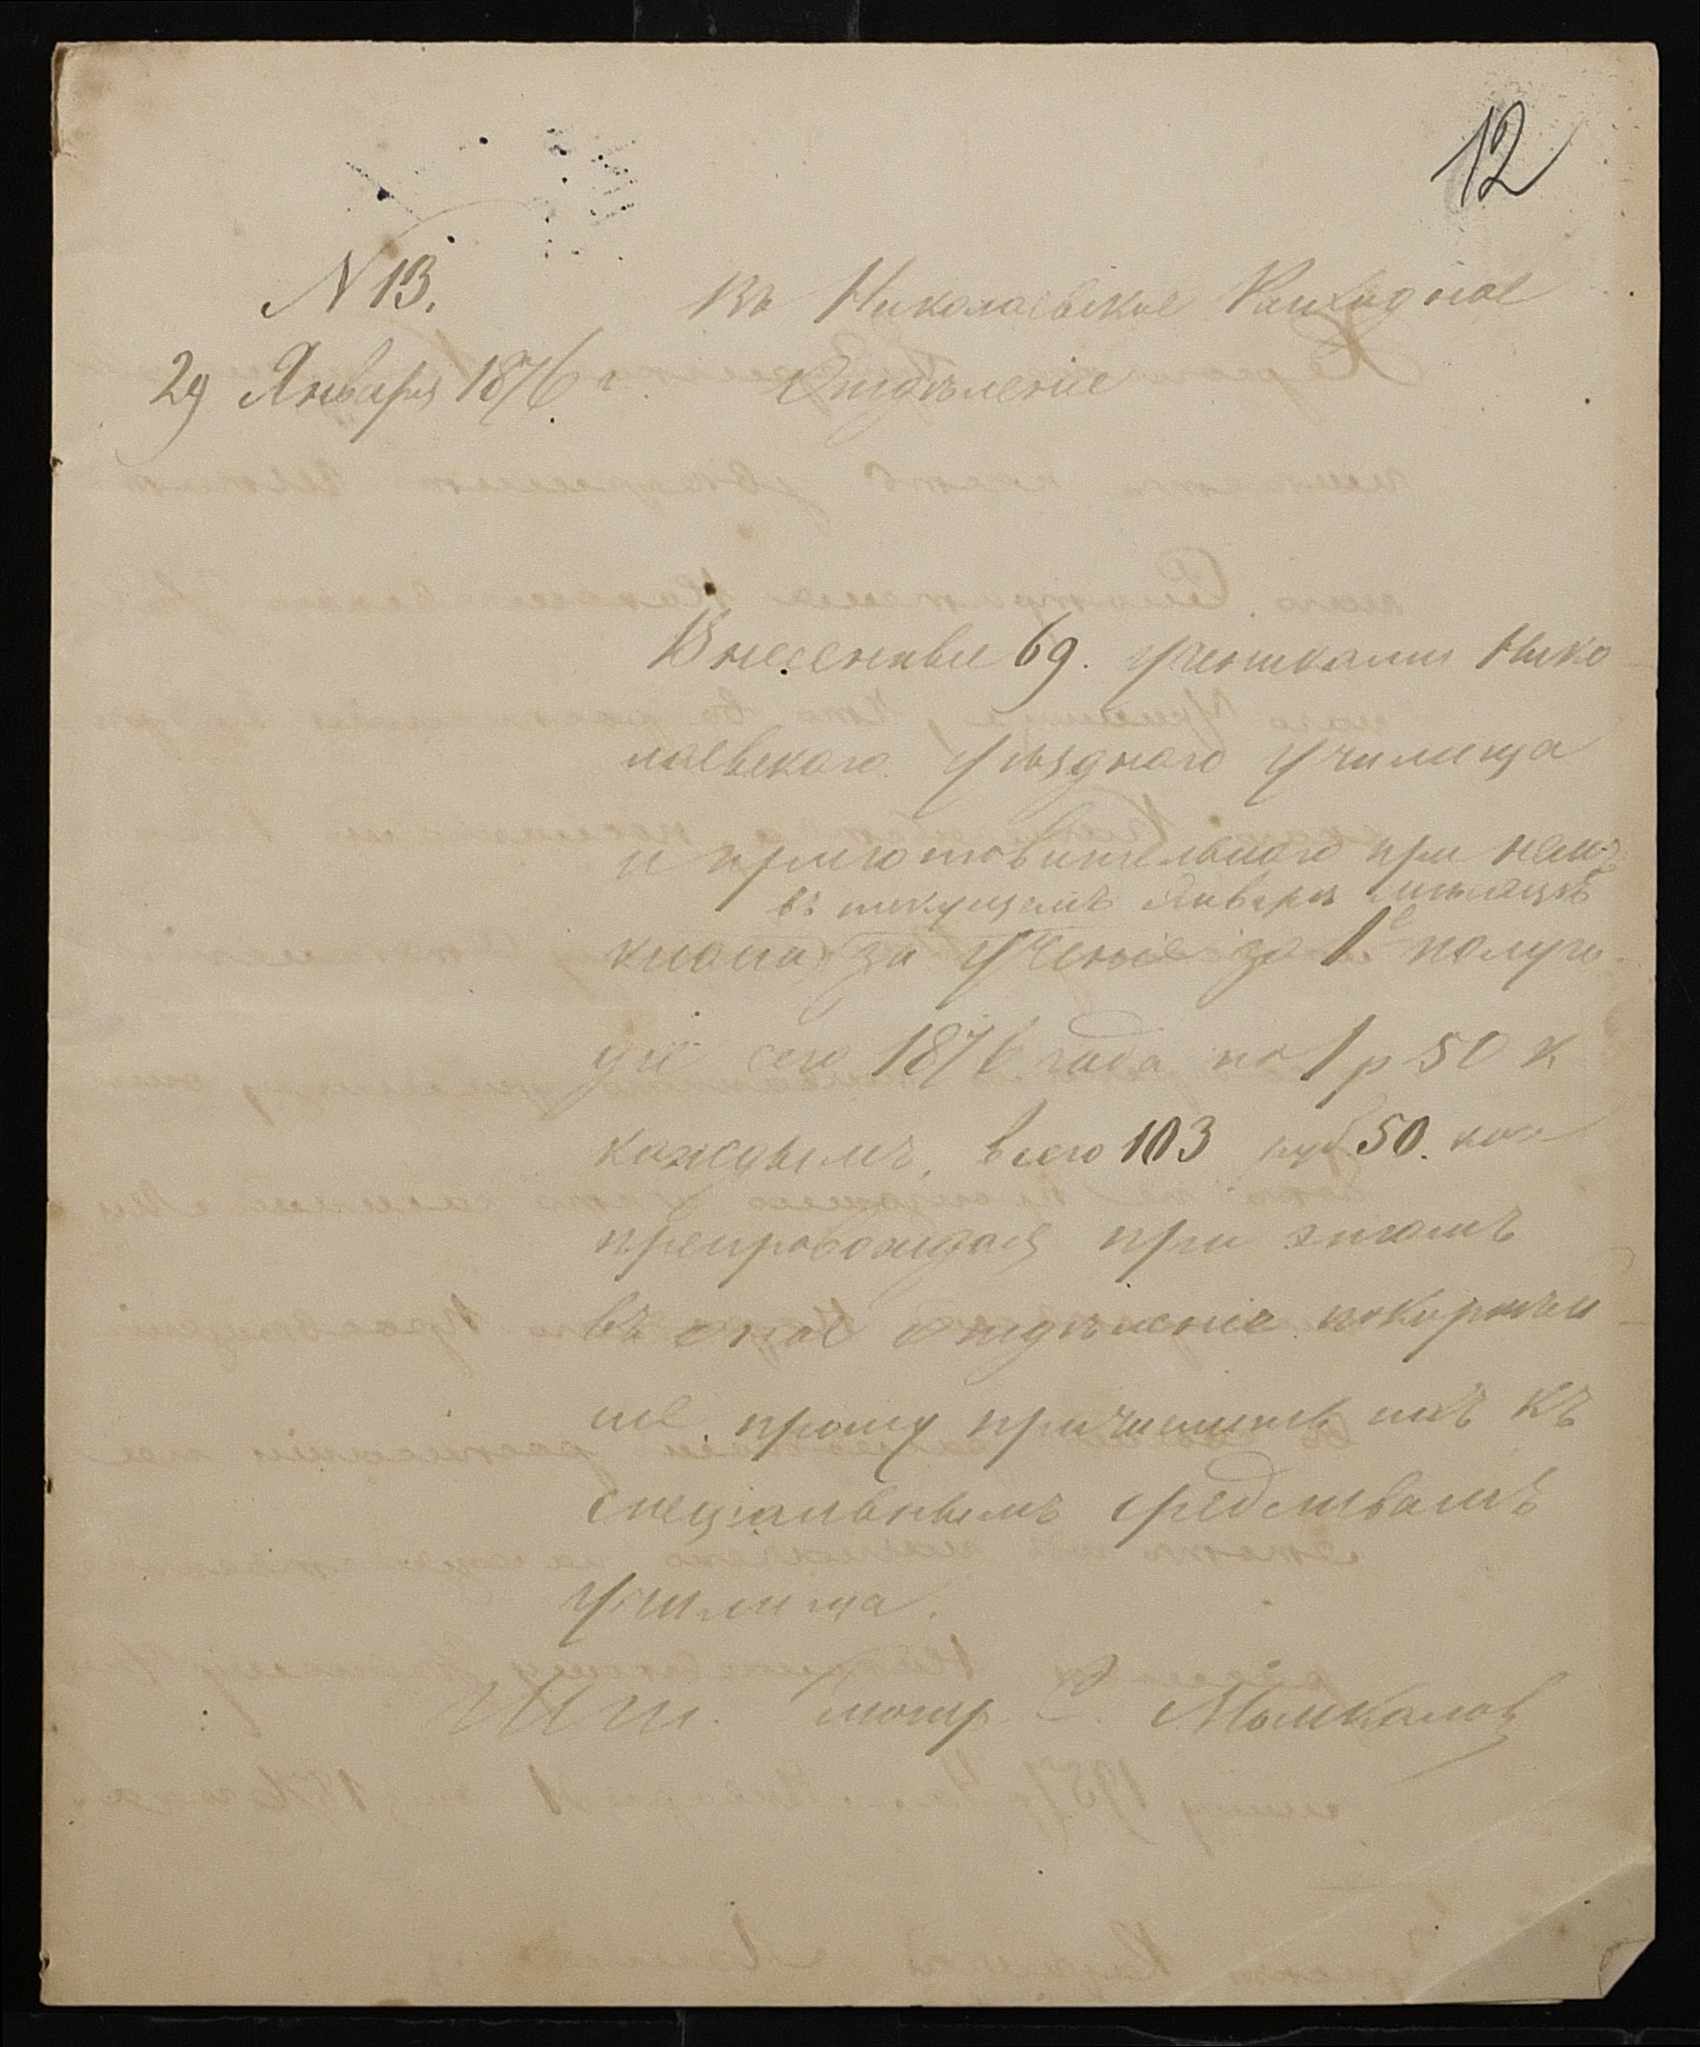 12
N 13.
29 Января 1876 г.
Въ Николаевское Расходное
Отдѣленіе
Внесенные 69. учениками Нико
лаевского уѣзднаго училища
и приготовительнаго при нем
въ текущемъ Январѣ мѣсяцѣ
класса за ученіе за 1е полуго-
діе сего 1876 года по 1 р 50 к
каждымъ, всего 103 руб 50. коп
препровождая при этомъ
въ оное отдѣленіе покорнѣй-
ше прошу причислить ихъ къ
спеціальнымъ средствамъ
училища.
Шт. Смотр С.